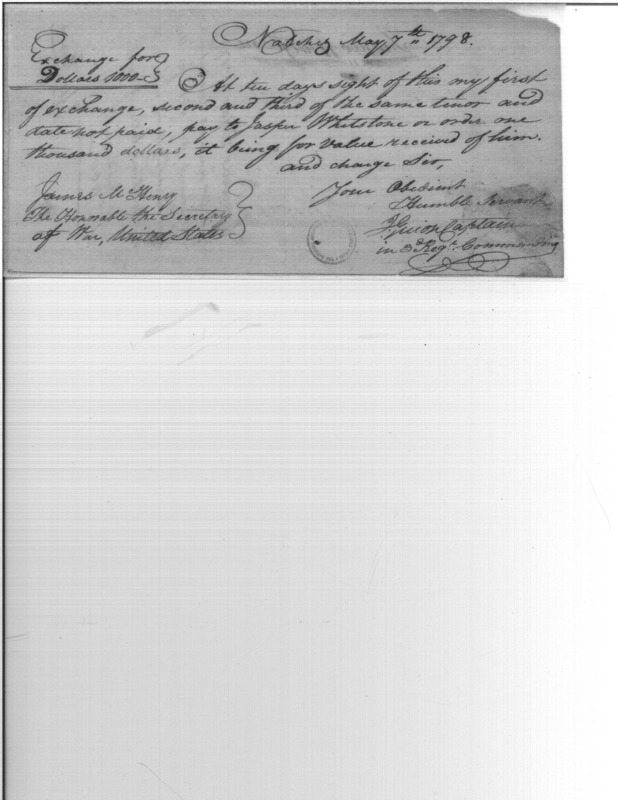 Natchez May 7th 1798.
Exchange for
Dollars 1000
At ten days sight of this my first
of exchange, second and third of the same tenor and
date not paid, pay to Jasper Whitstone or order one
thousand dollars, it being for value received of him.
and charge Sir,
Your Obedient
Humble Servant
J Guion Captain
in 3d Regt. Commanding
James McHenry
The Honorable the Secretary
of War, United States